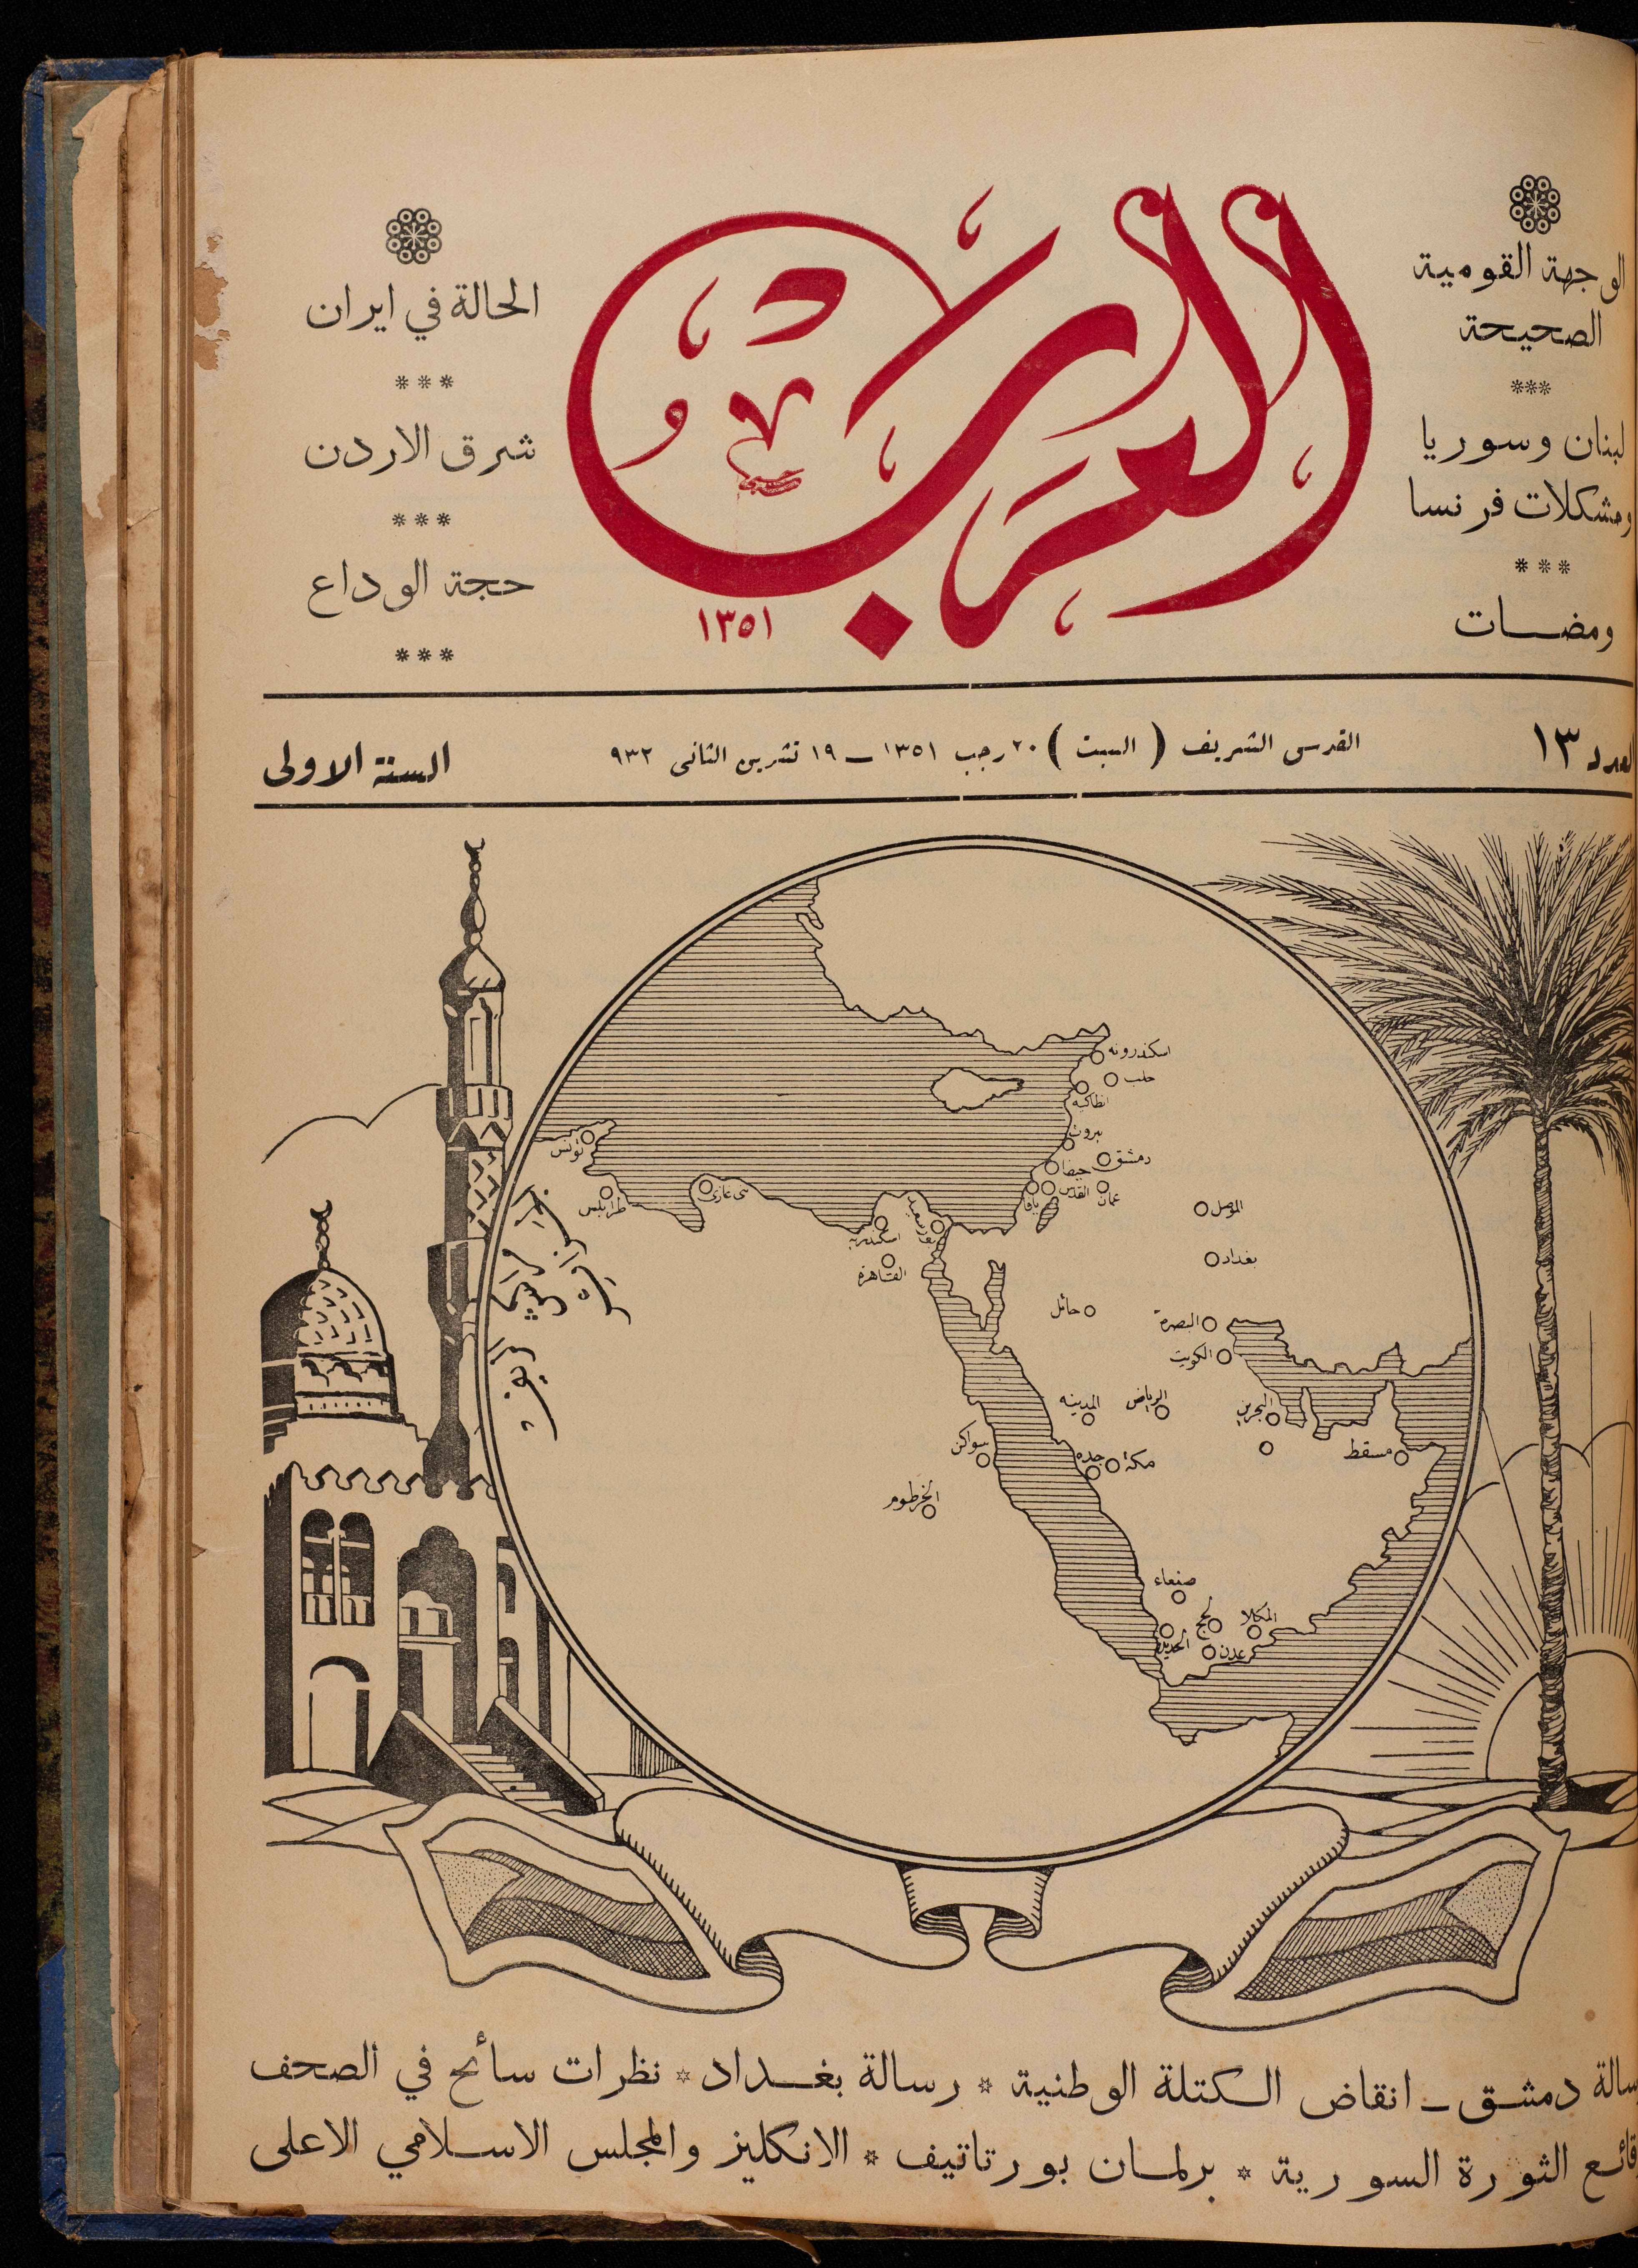 الوجهة القومية
الصحيحة
***
لبنان وسوريا
ومشكلات فرنسا
***
ومضات
العرب
١٣٥١
الحالة في ايران
***
شرق الاردن
***
حجة الوداع
***
العدد ١٣
القدس الشريف ( السبت ) ٢٠ رجب ١٣٥١ — ١٩ تشرين الثاني ٩٣٢
السنة الاولى
اسكندرونه
حلب
انطاكيه
بيروت
دمشق
حيفا
القدس
يافا
عمان
تونس
طرابلس
بني غازي
بور سعيد
اسكندريه
القاهرة
الموصل
بغداد
حائل
البصرة
الكويت
المدينه
الرياض
البحرين
مسقط
سواكن
جده
مكة
الخرطوم
صنعاء
لحج
المكلا
الحديدة
عدن
رسالة دمشق — انقاض الكتلة الوطنية * رسالة بغداد * نظرات سائح في الصحف
وقائع الثورة السورية * برلمان بورتاتيف * الانكليز والمجلس الاسلامي الاعلى